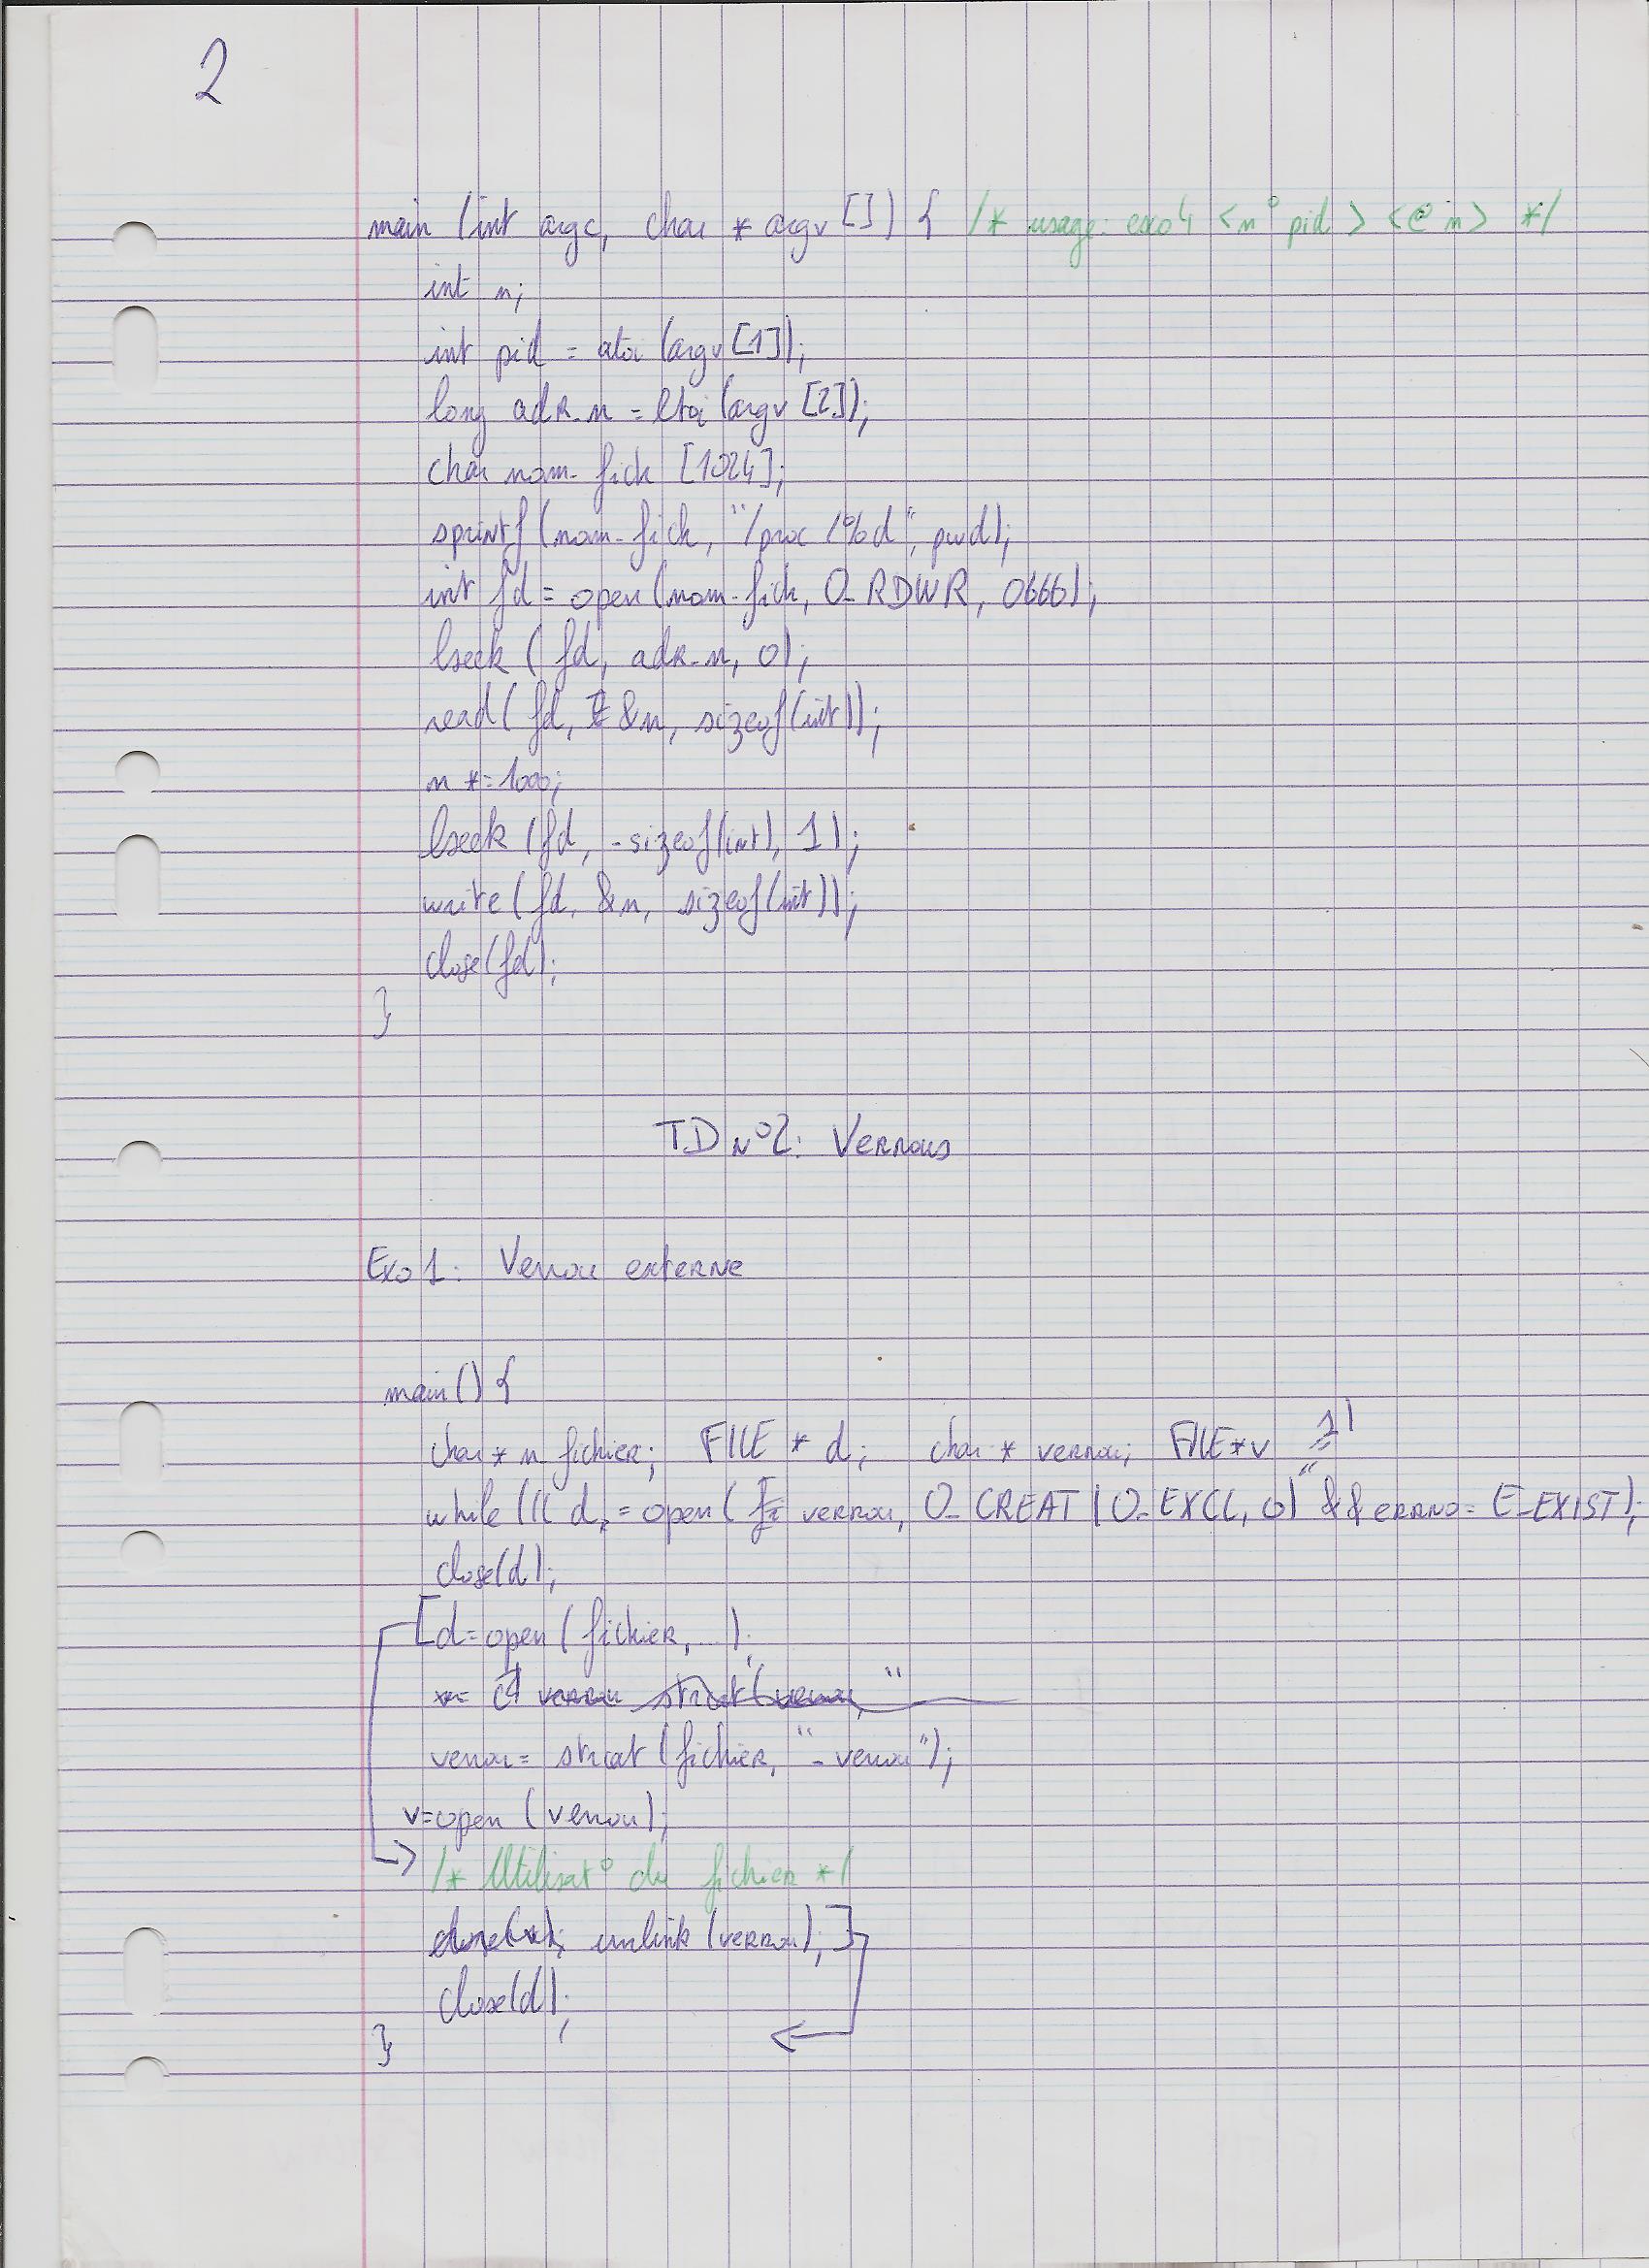 2
main (int argc, char * argv []) { /* usage: exo4 <n° pid> <@ n> */
int n;
int pid = atoi (argv [1]);
long adr_n = ltoi (argv [2]);
char nom_fich [1024];
sprintf (nom_fich, "/proc/%d", pwd);
int fd = open (nom_fich, O_RDWR, 0666);
lseek (fd, adr_n, 0);
read (fd, &n, sizeof(int));
n *= 1000;
lseek (fd, -sizeof(int), 1);
write (fd, &n, sizeof(int));
close(fd);
}
TD N°2: Verrous
Exo 1: Verrou externe
main () {
char * n fichier; FILE * d; char * verrou; FILE * v
-1)
while ((( d = open ( verrou, O_CREAT | O_EXCL, 0) == && errno = E_EXIST);
close(d);
[d=open (fichier, ...);
verrou
verrou = strcat (fichier, "_verrou");
v=open (verrou);
/* Utilisat° du fichier */
close(v); unlink (verrou);]
close(d);
}